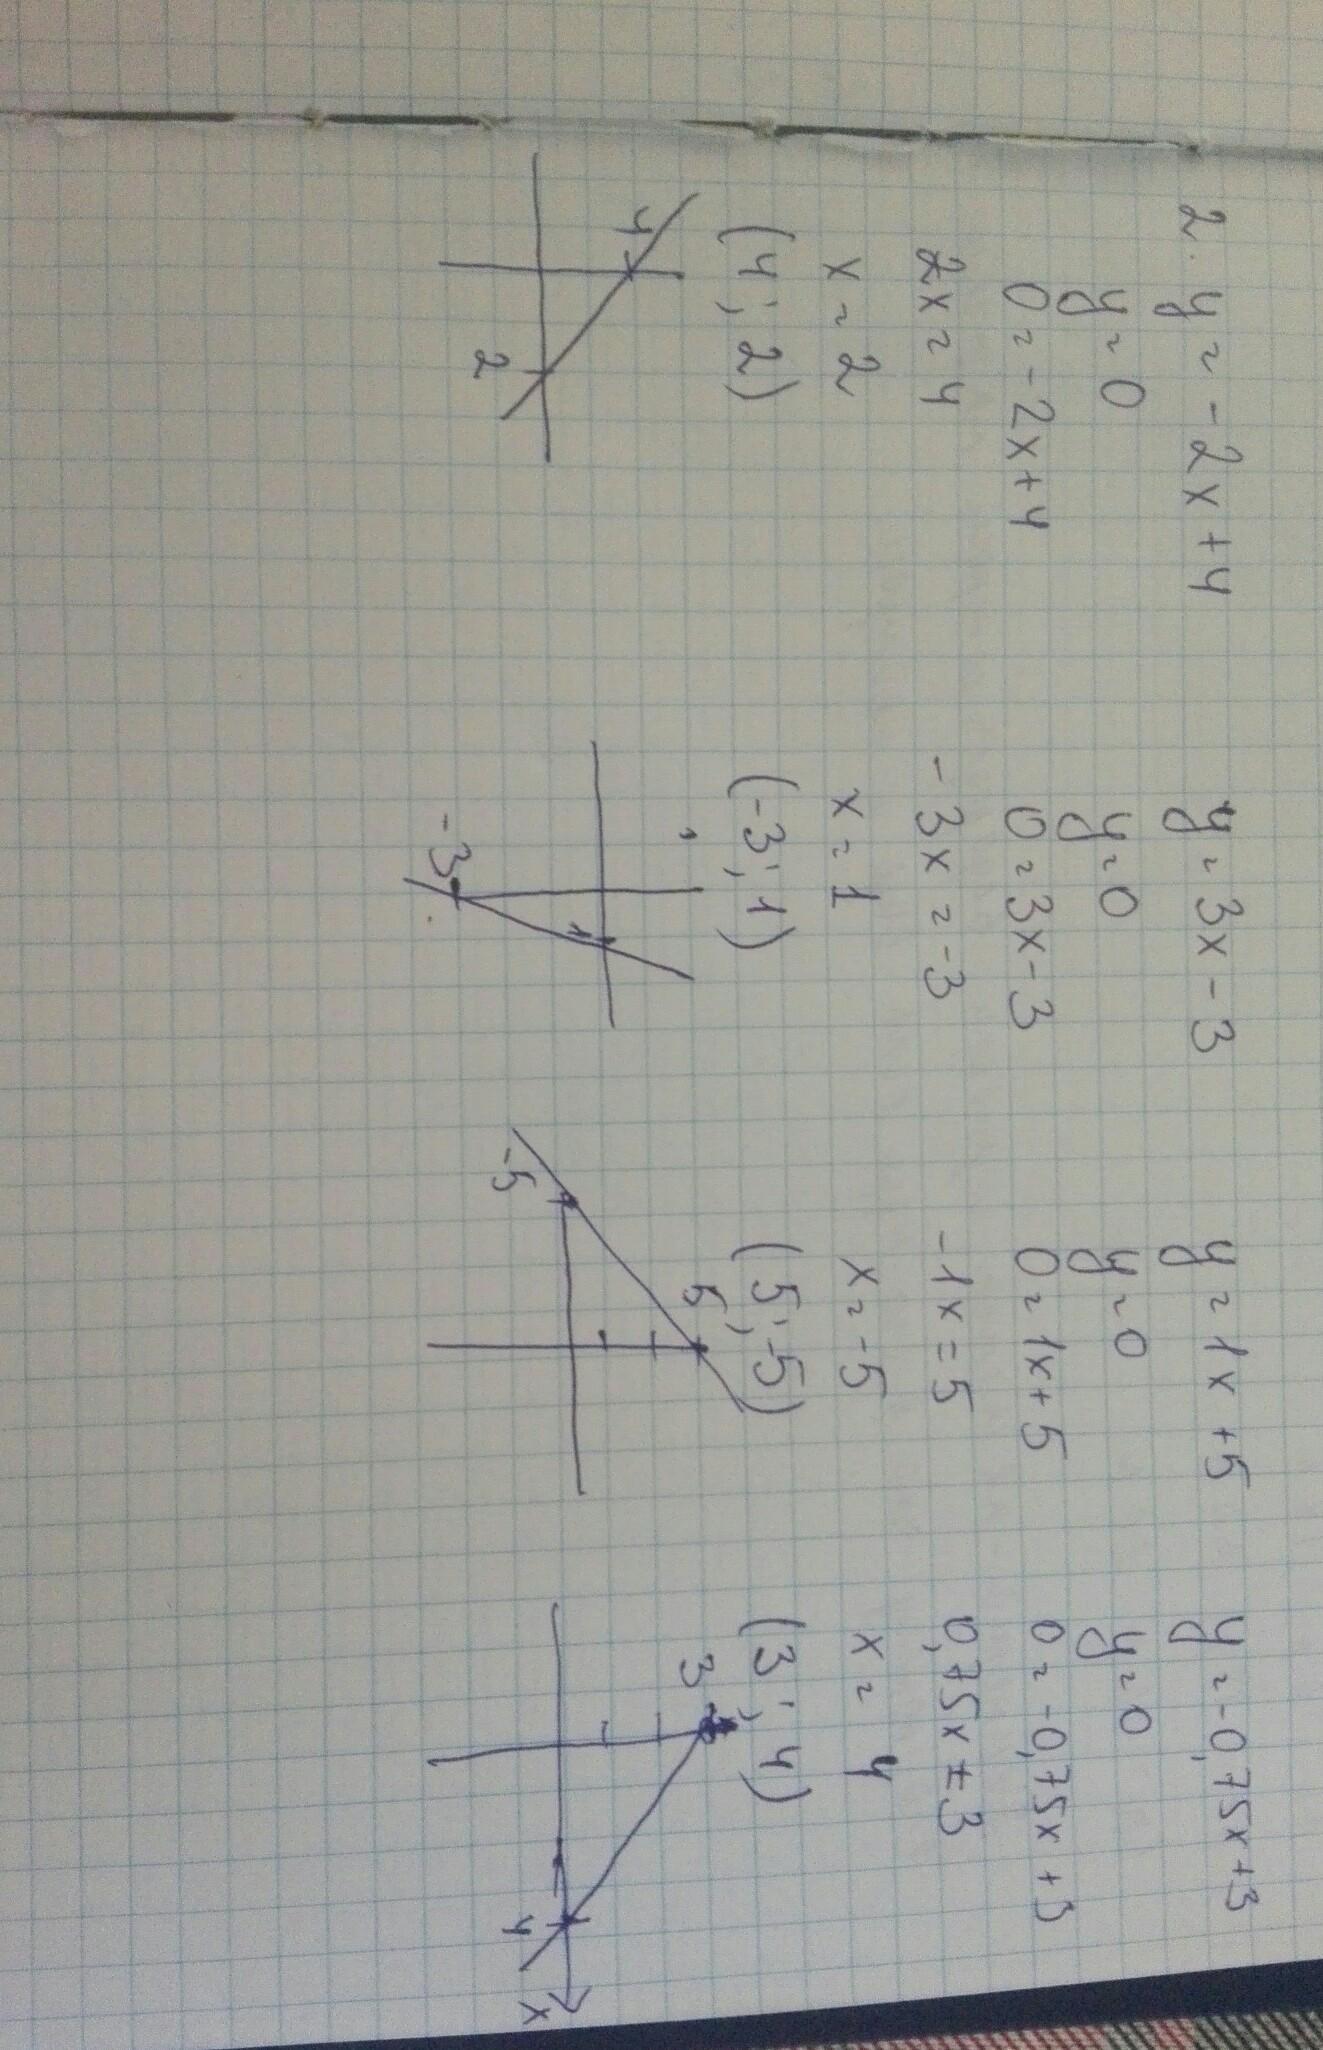 2. y = -2x+4
y=0
0 = -2x+4
2x = 4
x = 2
(4; 2)
4
2
y = 3x-3
y=0
0 = 3x-3
-3x = -3
x = 1
(-3; 1)
1
-3
y = 1x+5
y=0
0 = 1x+5
-1x = 5
x = -5
(5; -5)
5
-5
y = -0,75x+3
y=0
0 = -0,75x+3
0,75x = 3
x = 4
(3; 4)
3
4
x